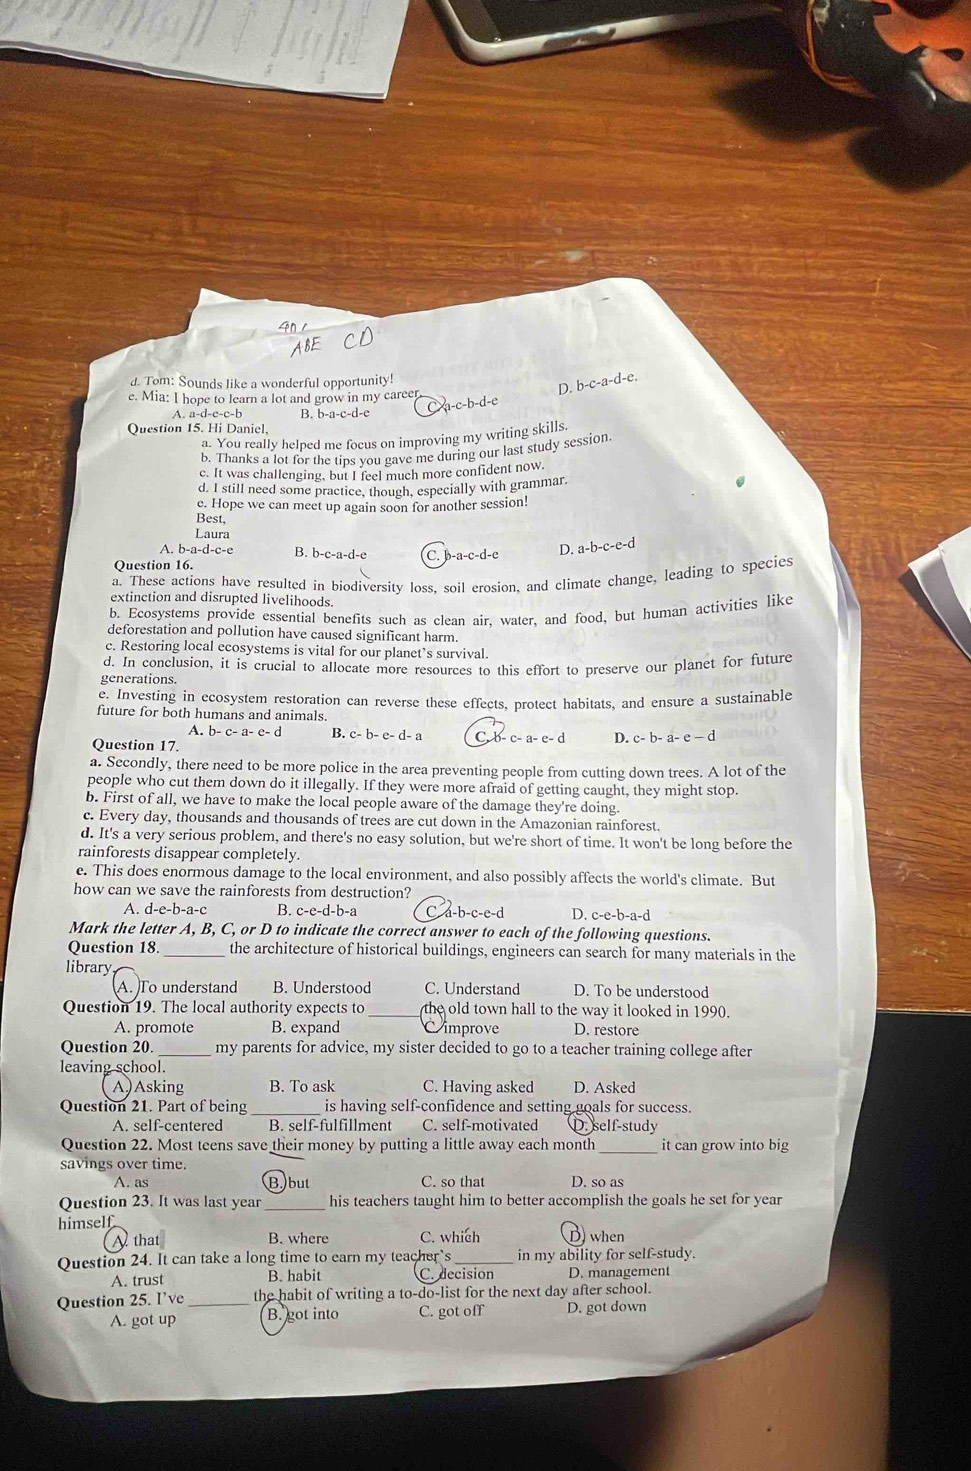 ABE CD
d. Tom: Sounds like a wonderful opportunity!
e. Mia: I hope to learn a lot and grow in my career.
A. a-d-e-c-b B. b-a-c-d-e C. a-c-b-d-e D. b-c-a-d-e.
Question 15. Hi Daniel,
a. You really helped me focus on improving my writing skills.
b. Thanks a lot for the tips you gave me during our last study session.
c. It was challenging, but I feel much more confident now.
d. I still need some practice, though, especially with grammar.
e. Hope we can meet up again soon for another session!
Best,
Laura
A. b-a-d-c-e B. b-c-a-d-e C. b-a-c-d-e D. a-b-c-e-d
Question 16.
a. These actions have resulted in biodiversity loss, soil erosion, and climate change, leading to species
extinction and disrupted livelihoods.
b. Ecosystems provide essential benefits such as clean air, water, and food, but human activities like
deforestation and pollution have caused significant harm.
c. Restoring local ecosystems is vital for our planet's survival.
d. In conclusion, it is crucial to allocate more resources to this effort to preserve our planet for future
generations.
e. Investing in ecosystem restoration can reverse these effects, protect habitats, and ensure a sustainable
future for both humans and animals.
A. b- c- a- e- d B. c- b- e- d- a C. b- c- a- e- d D. c- b- a- e – d
Question 17.
a. Secondly, there need to be more police in the area preventing people from cutting down trees. A lot of the
people who cut them down do it illegally. If they were more afraid of getting caught, they might stop.
b. First of all, we have to make the local people aware of the damage they're doing.
c. Every day, thousands and thousands of trees are cut down in the Amazonian rainforest.
d. It's a very serious problem, and there's no easy solution, but we're short of time. It won't be long before the
rainforests disappear completely.
e. This does enormous damage to the local environment, and also possibly affects the world's climate. But
how can we save the rainforests from destruction?
A. d-e-b-a-c B. c-e-d-b-a C. a-b-c-e-d D. c-e-b-a-d
Mark the letter A, B, C, or D to indicate the correct answer to each of the following questions.
Question 18. _______ the architecture of historical buildings, engineers can search for many materials in the
library.
A. To understand B. Understood C. Understand D. To be understood
Question 19. The local authority expects to ______ the old town hall to the way it looked in 1990.
A. promote B. expand C. improve D. restore
Question 20. ______ my parents for advice, my sister decided to go to a teacher training college after
leaving school.
A. Asking B. To ask C. Having asked D. Asked
Question 21. Part of being ________ is having self-confidence and setting goals for success.
A. self-centered B. self-fulfillment C. self-motivated D. self-study
Question 22. Most teens save their money by putting a little away each month _______ it can grow into big
savings over time.
A. as B. but C. so that D. so as
Question 23. It was last year _______ his teachers taught him to better accomplish the goals he set for year
himself.
A. that B. where C. which D. when
Question 24. It can take a long time to earn my teacher's _______ in my ability for self-study.
A. trust B. habit C. decision D. management
Question 25. I've _______ the habit of writing a to-do-list for the next day after school.
A. got up B. got into C. got off D. got down